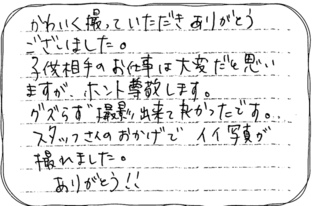 かわいく撮っていただきありがとう
ございました。
子供相手のお仕事は大変だと思い
ますが、ホント尊敬します。
グズらず撮影出来て良かったです。
スタッフさんのおかげでイイ写真が
撮れました。
ありがとう!!